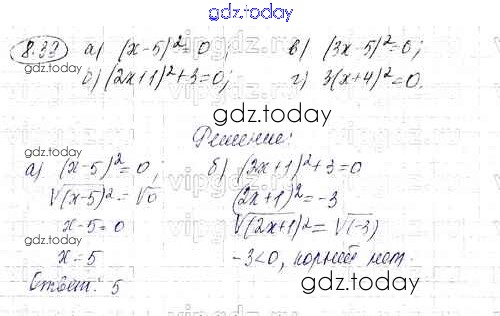 gdz.today
8.33 а) (x-5)²=0; в) (3x-5)²=0;
gdz.today
б) (2x+1)²+3=0; г) 3(x+4)²=0.
gdz.today
Решение:
gdz.today
а) (x-5)²=0; б) (3x+1)²+3=0
√(x-5)²=√0 (2x+1)²=-3
x-5=0 √(2x+1)²=√(-3)
gdz.today
x=5 -3<0, корней нет.
Ответ: 5
gdz.today